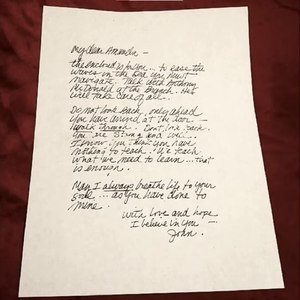 My dear Amanda –
the enclosed is for you... to ease the
waves in the sea you must
navigate. Talk with Anthony
McDonald at the Branch. He
will take care of all.
Do not look back, only ahead
You have arrived at the door –
Walk through. Don't look back.
You are strong and well.
I know you think you have
nothing to teach. We teach
what we need to learn... that
is enough.
May I always breathe life to your
soul... as you have done to
mine.
With love and hope
I believe in you –
John.